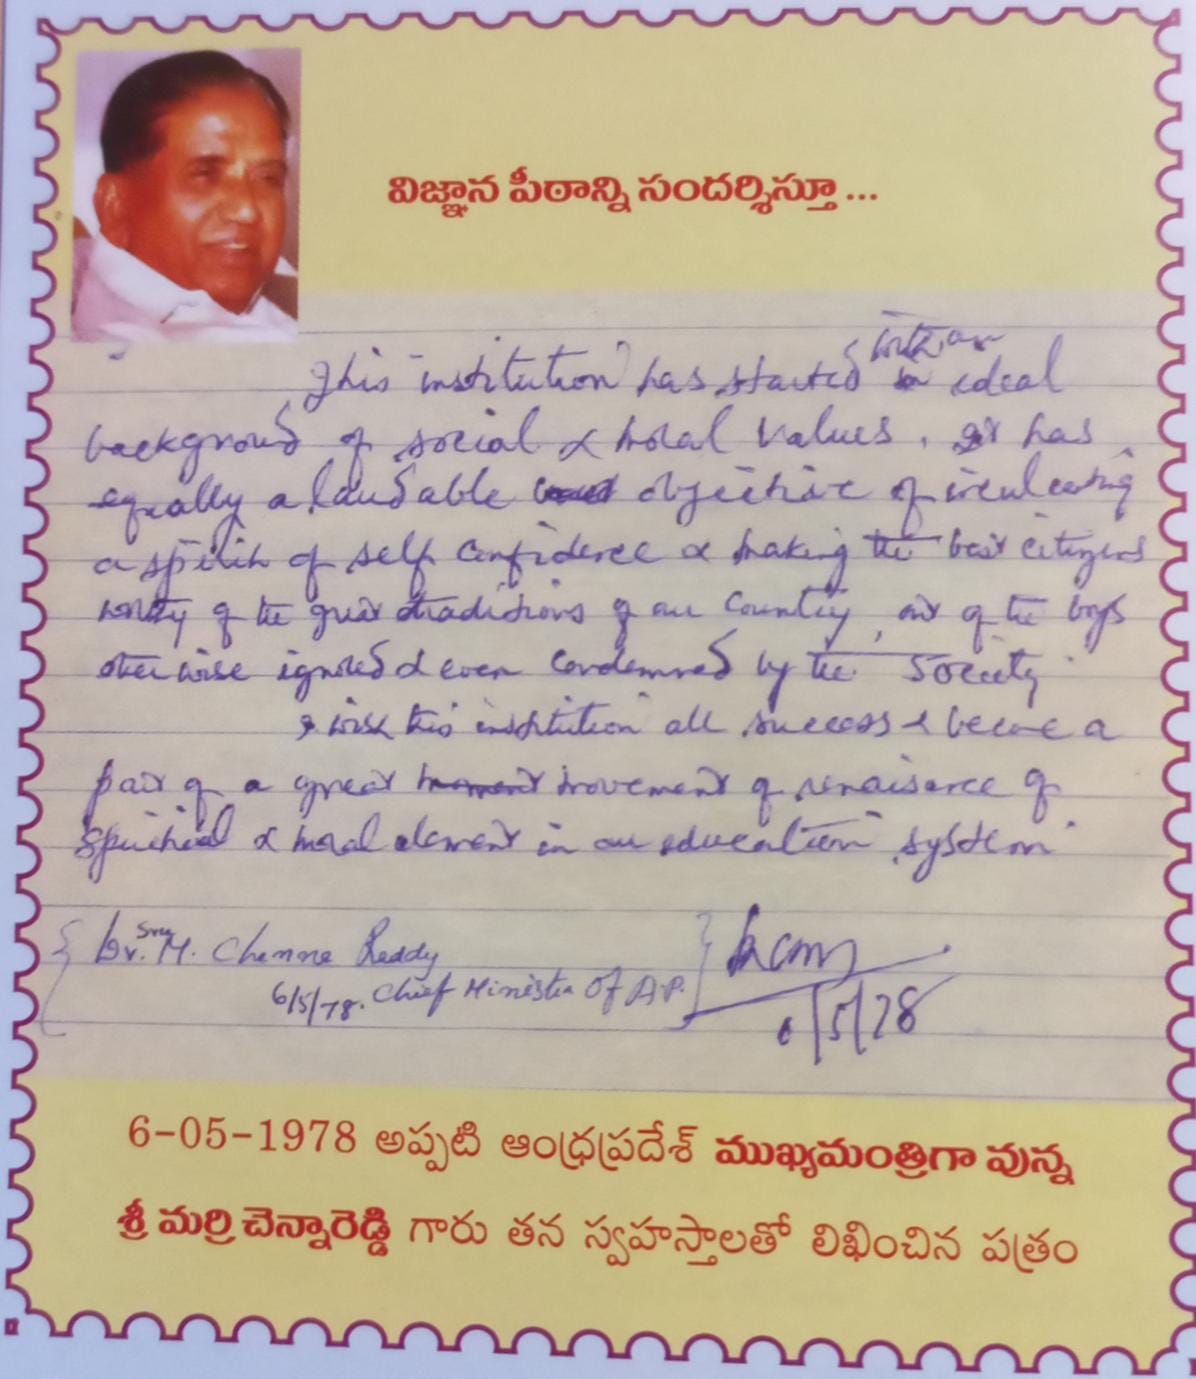 విజ్ఞాన పీఠాన్ని సందర్శిస్తూ ...
This institution has started with an ideal
background of social & moral values. It has
equally a laudable objective of inculcating
a spirit of self confidence & making the best citizens
worthy of the great traditions of our country, out of the boys
otherwise ignored & even condemned by the society
I wish this institution all success & become a
part of a great movement of renaisance of
spiritual & moral element in our education system
Dr. Sri M. Chenna Reddy
6/5/78. Chief Minister Of A.P.
6/5/78
6-05-1978 అప్పటి ఆంధ్రప్రదేశ్ ముఖ్యమంత్రిగా వున్న
శ్రీ మర్రి చెన్నారెడ్డి గారు తన స్వహస్తాలతో లిఖించిన పత్రం